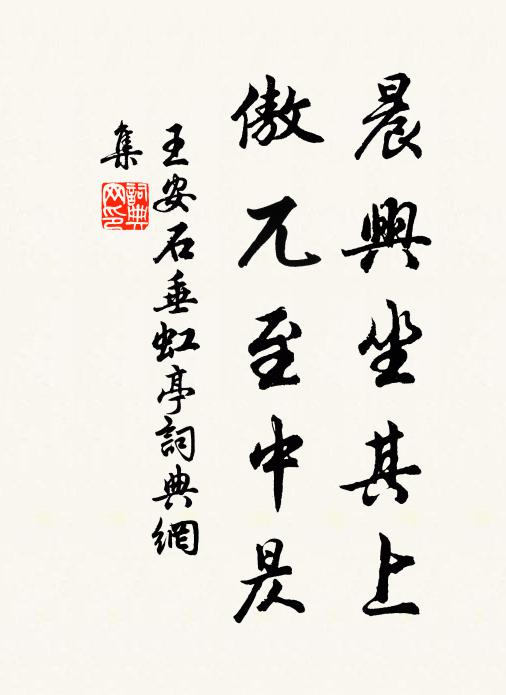 晨興坐其上
傲兀至中昃
王安石垂虹亭詞典網
集
詞典網印